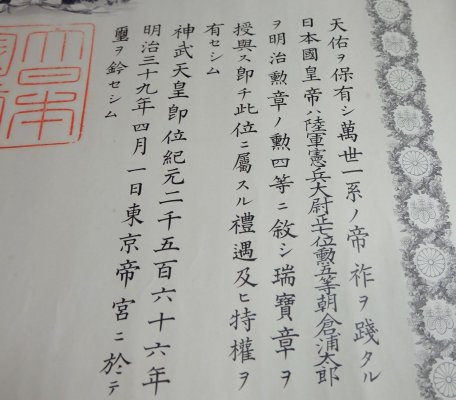 天佑ヲ保有シ萬世一系ノ帝祚ヲ踐タル
日本國皇帝ハ陸軍憲兵大尉正七位勲五等朝倉浦太郎
ヲ明治勲章ノ勲四等ニ敘シ瑞寶章ヲ
授與ス卽チ此位ニ屬スル禮遇及ヒ特權ヲ
有セシム
神武天皇卽位紀元二千五百六十六年
明治三十九年四月一日東京帝宮ニ於テ
璽ヲ鈐セシム
大日本
國